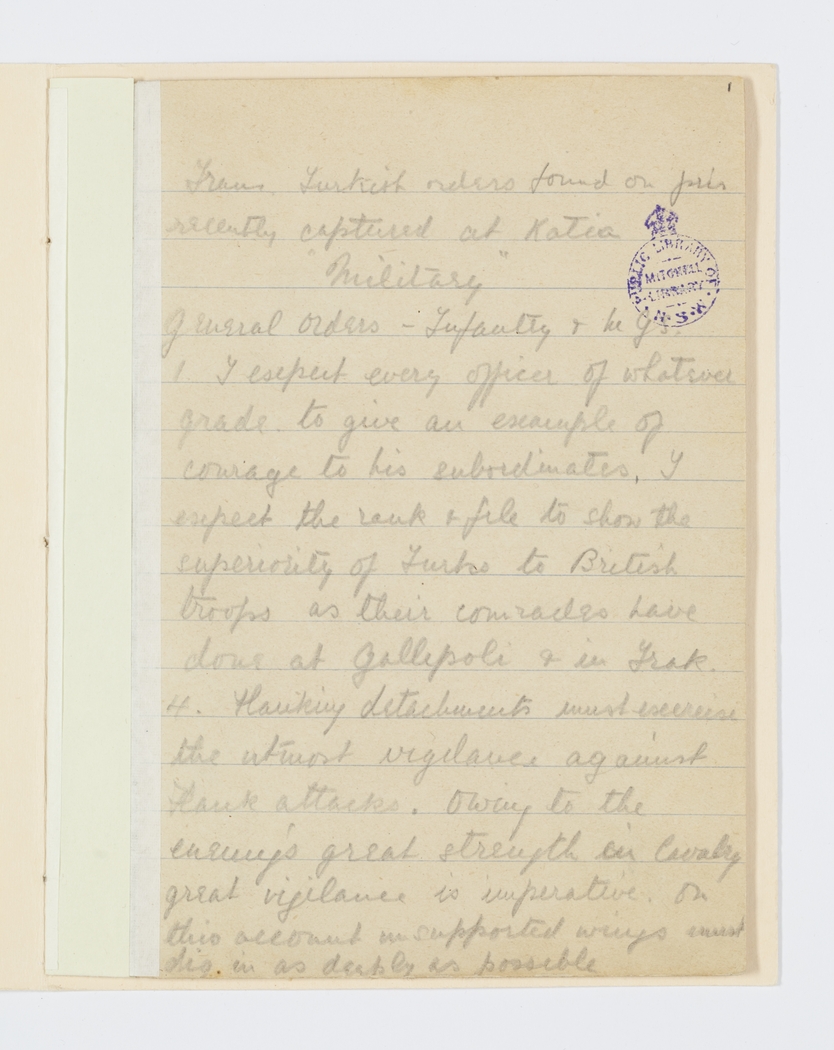 1
Trans. Turkish orders found on pris
recently captured at Katia
"Military"
General Orders - Infantry & M Gs.
1. I expect every officer of whatever
grade to give an example of
courage to his subordinates, I
expect the rank & file to show the
superiority of Turks to British
troops as their comrades have
done at Gallepoli & in Irak.
4. Flanking detachments must exercise
the utmost vigilance against
flank attacks. Owing to the
enemy's great strength in Cavalry
great vigilance is imperative. On
this account unsupported wings must
dig in as deeply as possible
PUBLIC LIBRARY OF N.S.W.
MITCHELL
LIBRARY